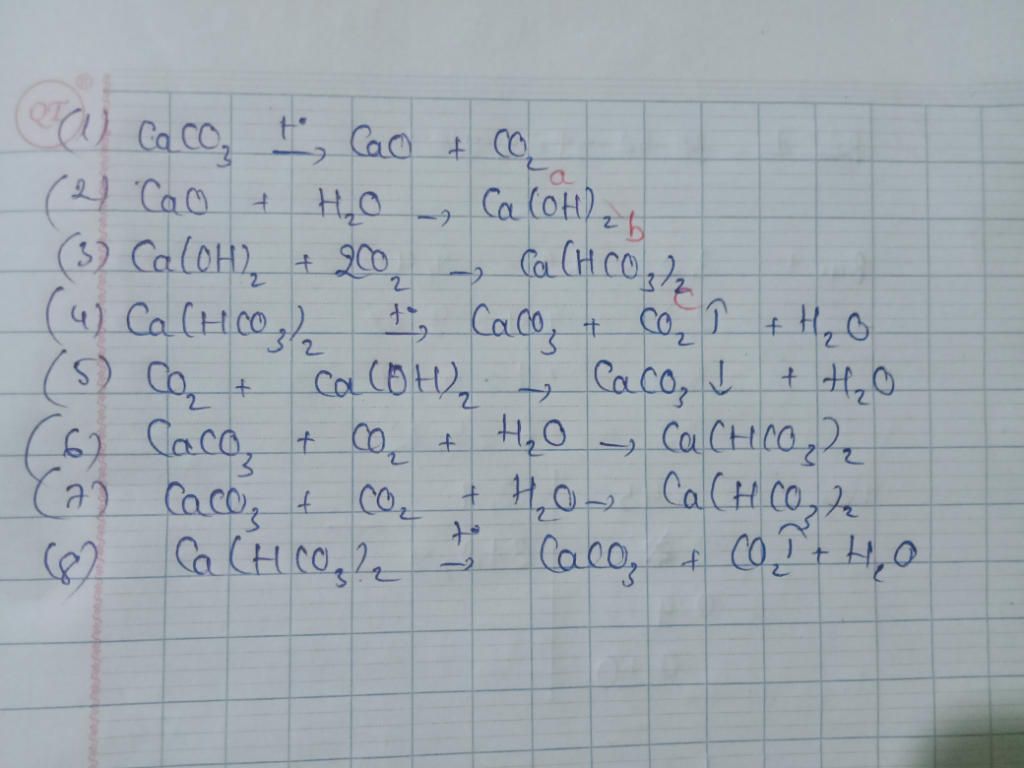 (1) CaCO3 t° → CaO + CO2
a
(2) CaO + H2O → Ca(OH)2
b
(3) Ca(OH)2 + 2CO2 → Ca(HCO3)2
c
(4) Ca(HCO3)2 t° → CaCO3 + CO2 ↑ + H2O
(5) CO2 + Ca(OH)2 → CaCO3 ↓ + H2O
(6) CaCO3 + CO2 + H2O → Ca(HCO3)2
(7) CaCO3 + CO2 + H2O → Ca(HCO3)2
(8) Ca(HCO3)2 t° → CaCO3 + CO2 ↑ + H2O